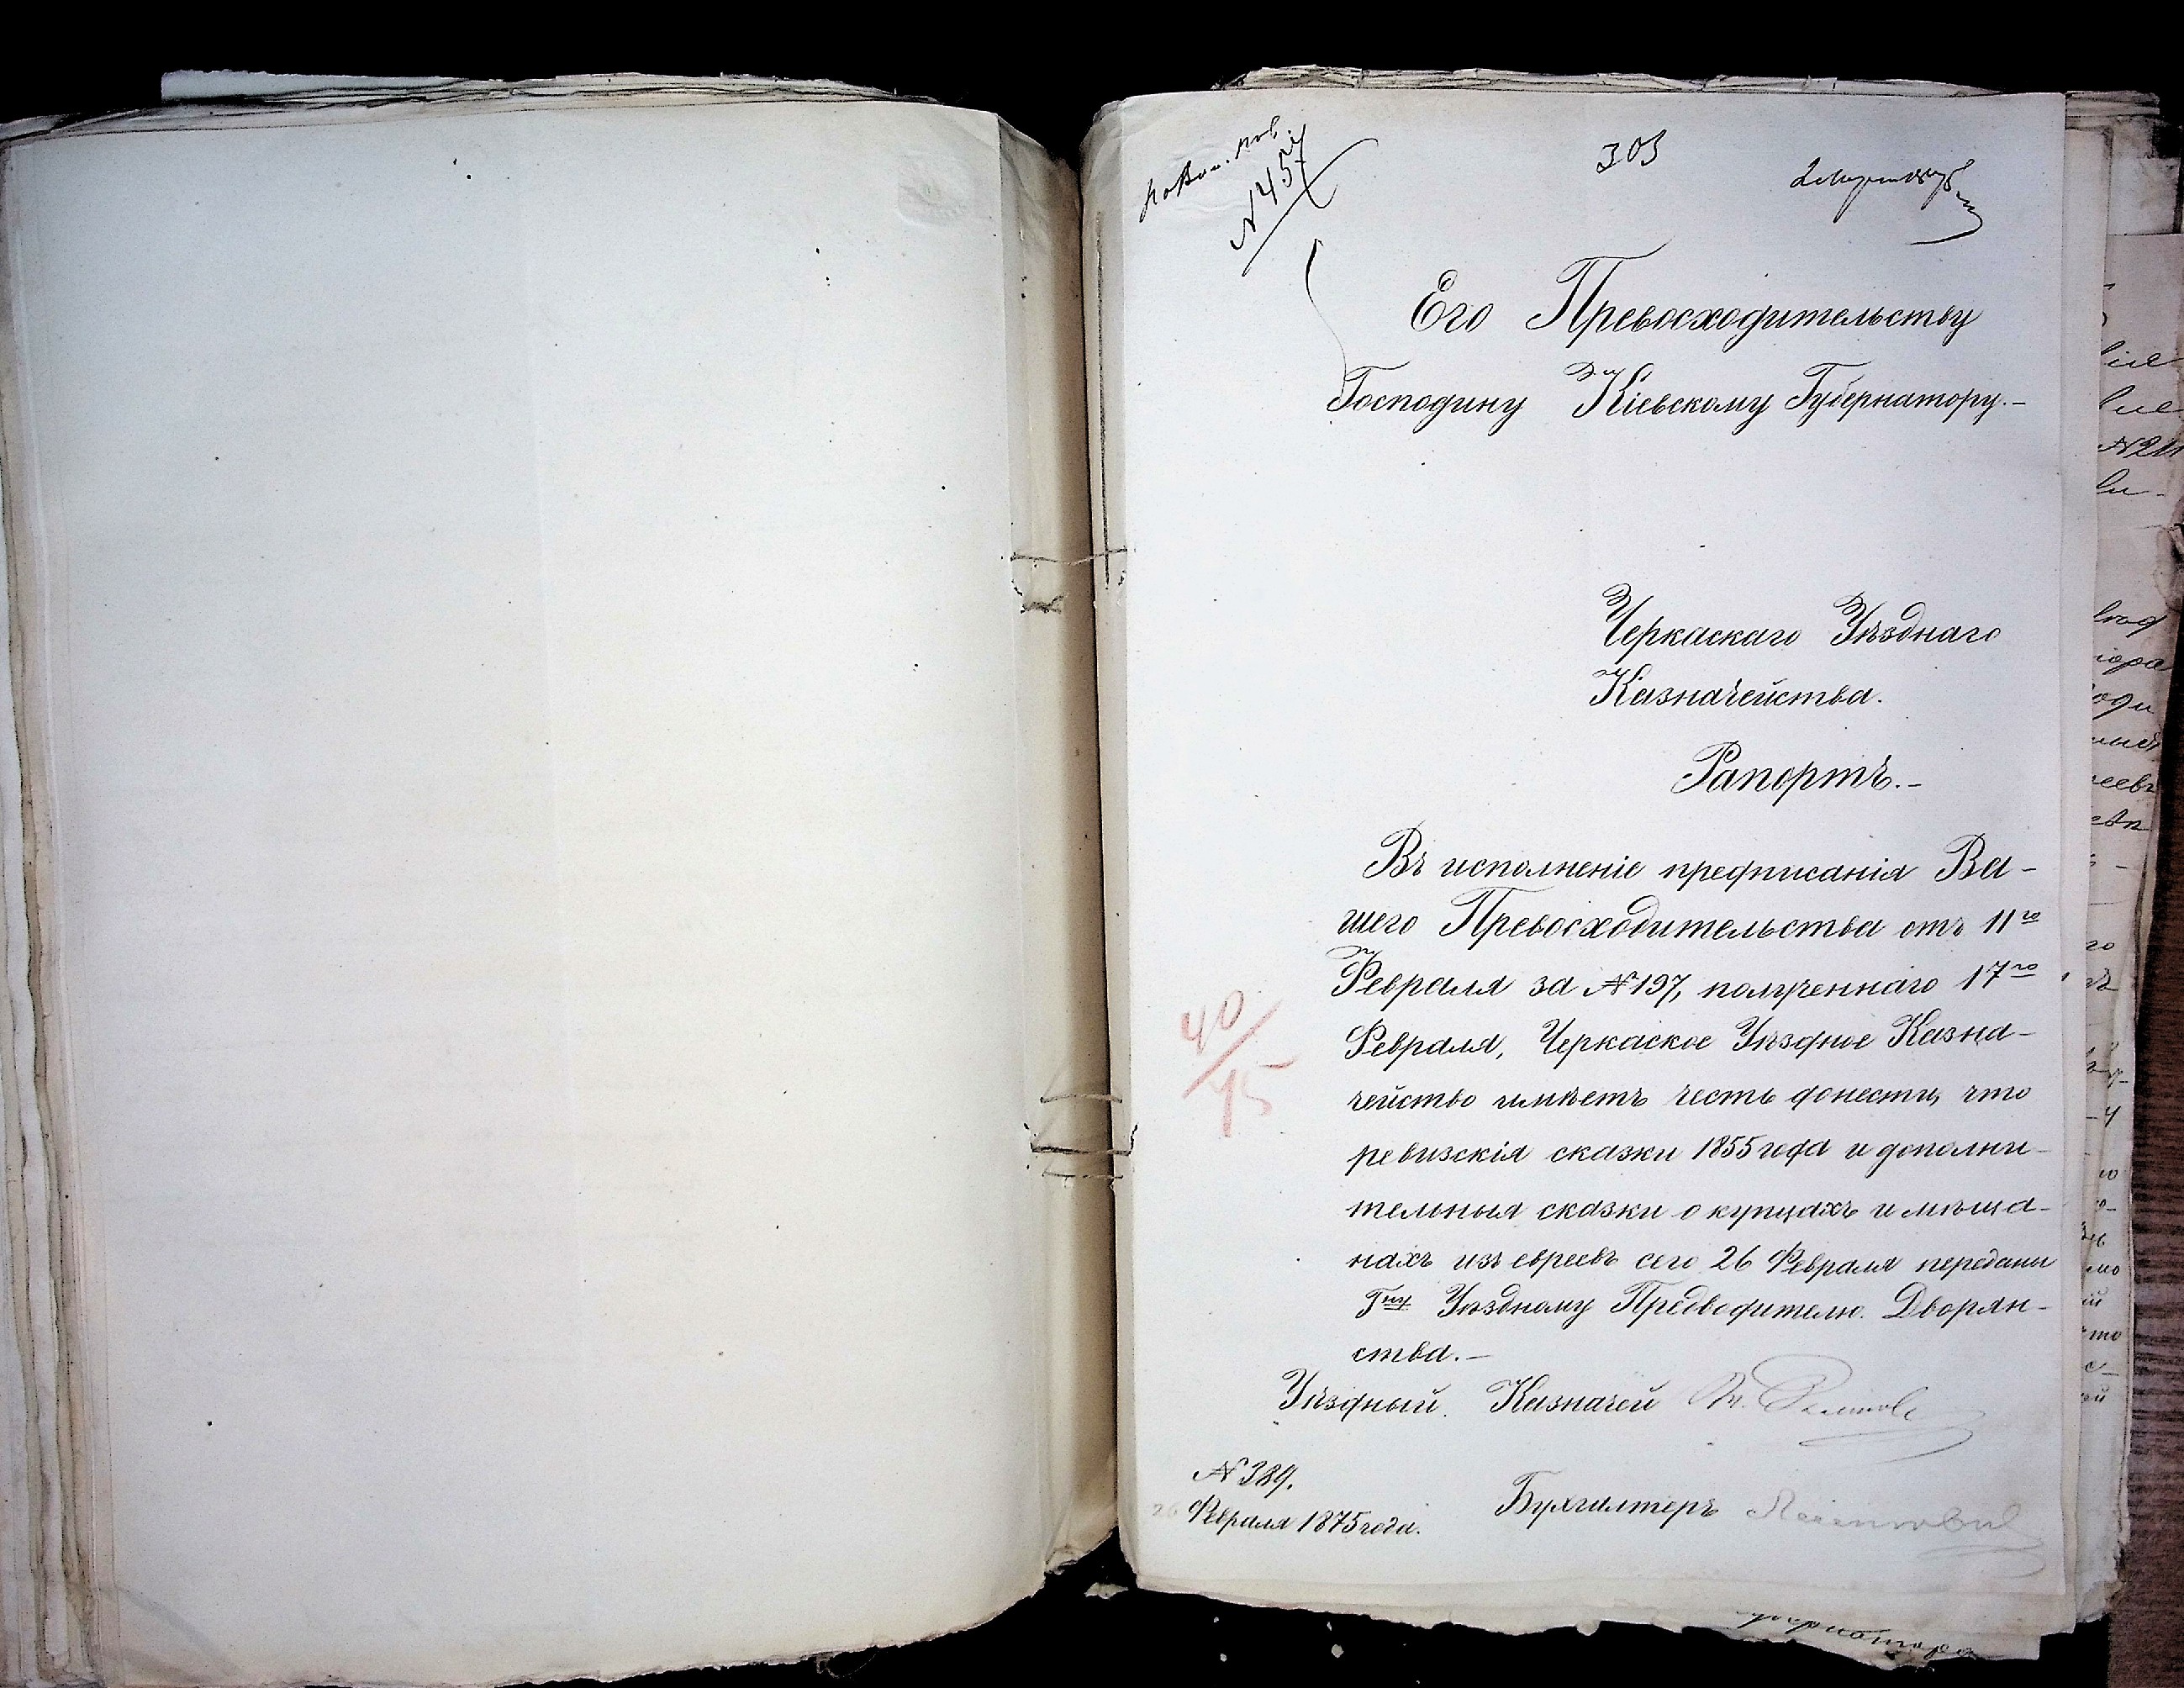 № 457
303
Его Превосходительству
Господину Кіевскому Губернатору.-
Черкаскаго Уѣзднаго
Казначейства.
Рапортъ.-
Въ исполненіе предписанія Ва-
шего Превосходительства отъ 11го
Февраля за № 197, полученнаго 17го
Февраля, Черкаское Уѣздное Казна-
чейство имѣетъ честь донести, что
ревизскія сказки 1855 года и дополни-
тельныя сказки о купцахъ и мѣща-
нахъ изъ евреевъ сего 26 Февраля переданы
Гну Уѣздному Предводителю Дворян-
ства.-
40/75
Уѣздный Казначей
№ 389.
26 Февраля 1875 года.
Бухгалтеръ